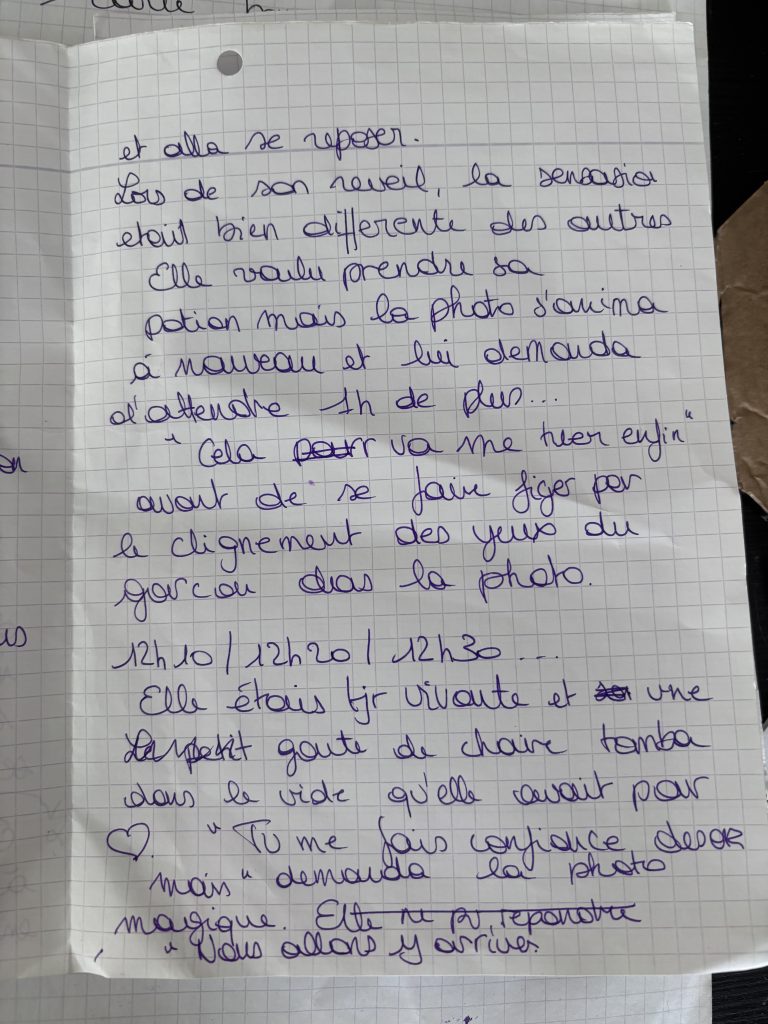 et alla se reposer.
Lors de son reveil, la sensation
etait bien differente des autres
Elle voulu prendre sa
potion mais la photo s'anima
à nouveau et lui demanda
d'attendre 1h de plus...
"Cela pourr va me tuer enfin"
avant de se faire figer par
le clignement des yeux du
garcon dans la photo.
12h10 / 12h20 / 12h30 ...
Elle étais tjr vivante et une
petit goute de chaire tomba
dans le vide qu'elle avait pour
♡. "Tu me fais confiance desor
mais" demanda la photo
magique. Elle ne pu repondre
"Nous allons y arriver.
on
us